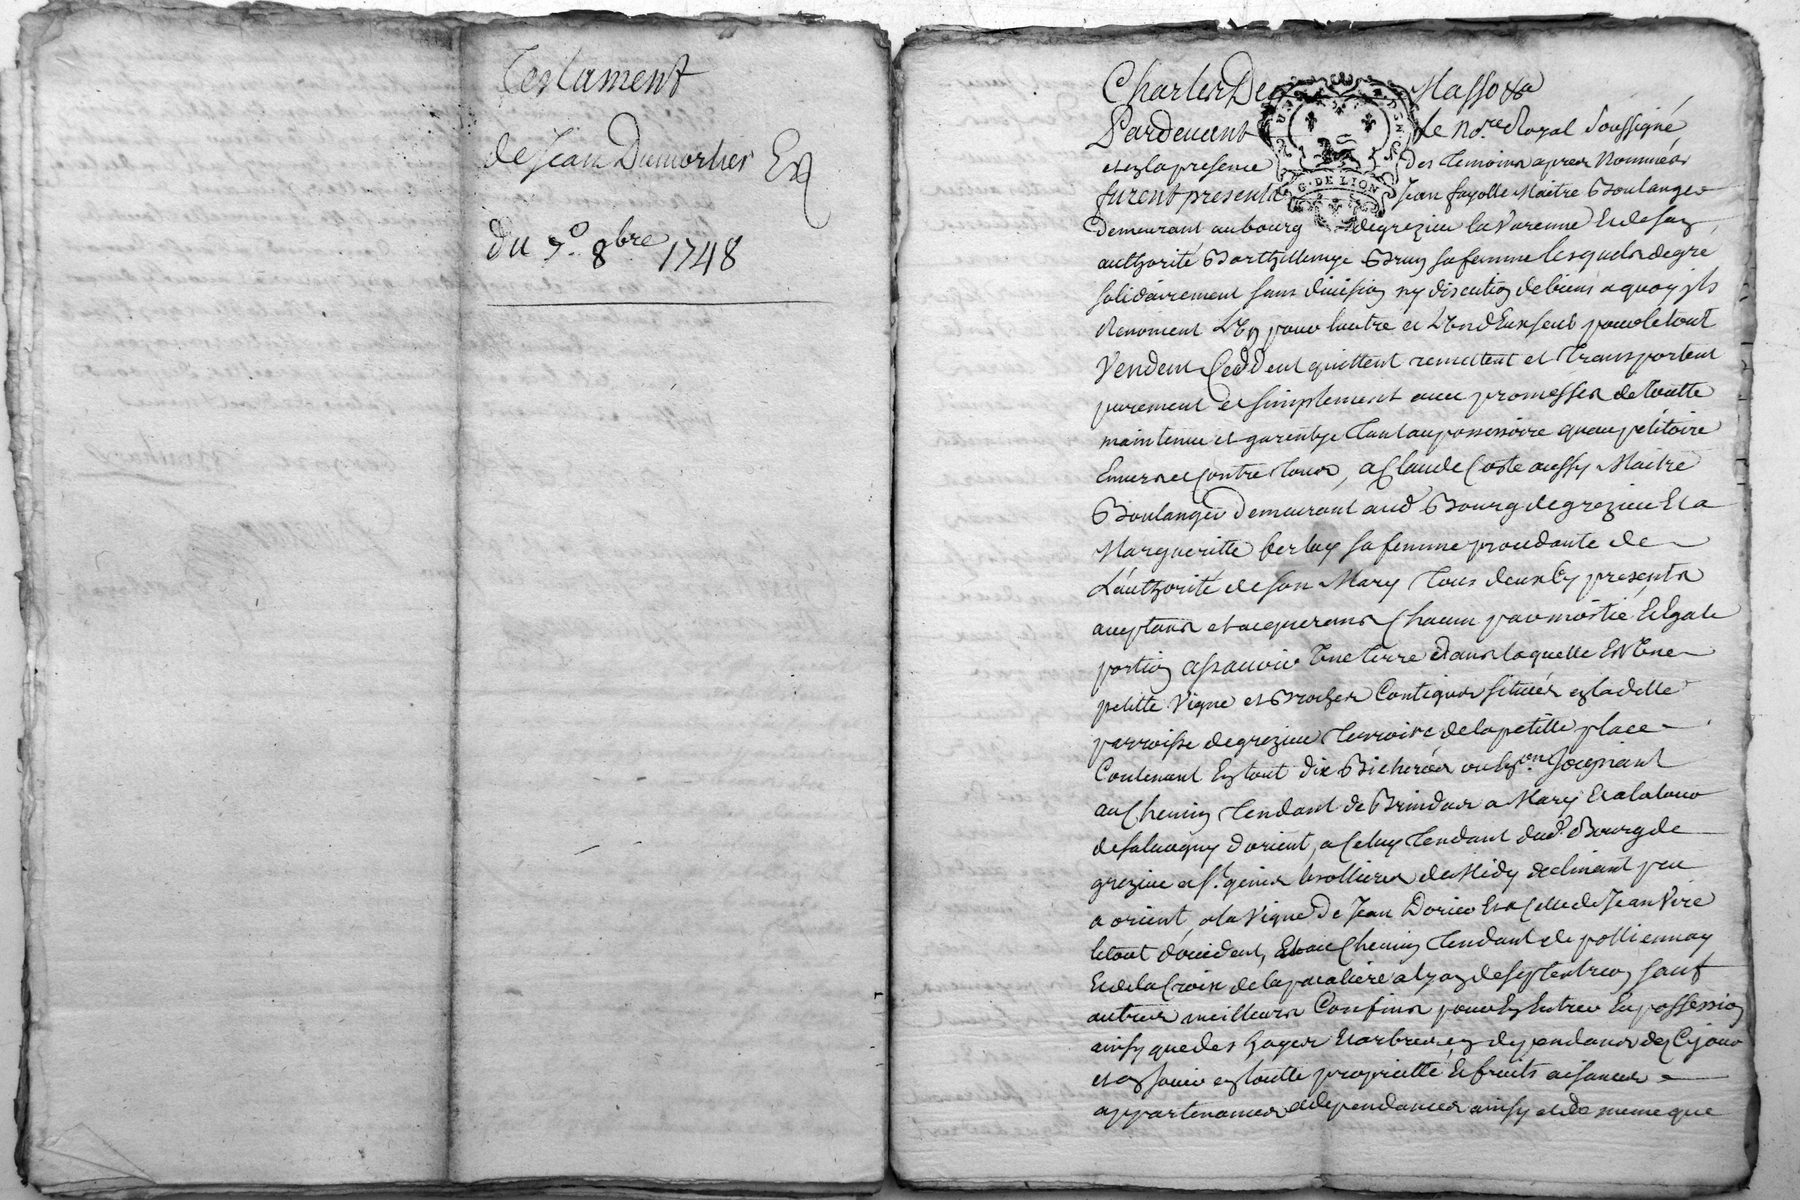 Testament
de Jean Dumortier
Du 7e. 8bre 1748
Charles De Masso &a
Pardevant le no.re Royal Soussigné
et en la presence des temoins apres nommés
furent presents Jean fayolle Maitre Boulanger
demeurant au bourg de grezieu la Varenne Et de son
authorité Barthellemye Brun sa femme lesquels de gré
solidairement sans division ny discution de biens a quoy ils
Renoncent L'un pour lautre et L'un d'Eux seul pour le tout
Vendent Ceddent quittent remettent et transportent
purement et simplement avec promesses de toutte
maintenue et garentye tant au possessoire quau petitoire
Envers et Contre tous, a Claude Coste aussy Maitre
Boulanger demeurant aud. Bourg de grezieu Et a
Margueritte sa femme procedante de
L'authorité de son Mary tous deux Cy presents
acceptans et acquerans Chacun par moitié Et Egale
portion assavoir Une terre dans laquelle Est Une
petitte Vigne et Broches Contigues situées en la dette
parroisse de grezieu terroire de la petitte place
Contenant En tout dix Bicherées ou En.on Joignant
au Chemin tendant de Brindas a Marcy Et a la tour
de salvagny d'orient, a Celuy tendant dud. Bourg de
grezieu a St. genis les ollieres de Midy declinant peu
a orient, a la Vigne De Jean Dorier Et a Celle de Jean
le tout d'occident, Et au Chemin tendant de pollionnay
Et de la Croix de la a Lyon de septentrion sauf
autres meilleurs Confins pour En Entrer En possession
ainsy que des hayes Et arbres en dependans des Ce jour
et en Jouir en toutte proprietté Et fruits aisances
appartenances et dependances ainsy et de meme que